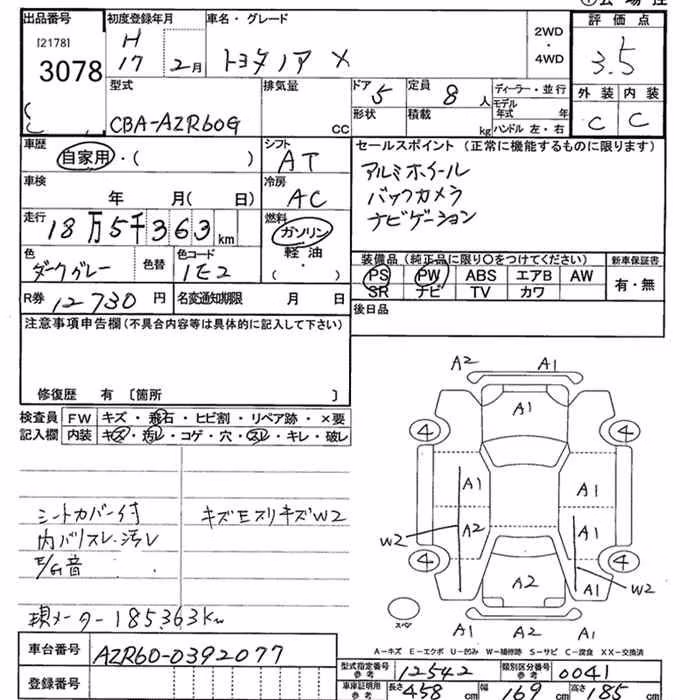 出品番号
[2178]
3078
初度登録年月
H
17 2月
車名・グレード
トヨタノア X
2WD
・
4WD
評価点
3.5
外装 内装
C C
型式
CBA-AZR60G
排気量
CC
ドア 5
形状
定員 8 人
積載 kg
ディーラー・並行
モデル年式 年
ハンドル 左・右
車歴
自家用・( )
シフト
AT
車検
年 月( 日)
冷房
AC
走行
18万5千363km
燃料
ガソリン
軽油
・( )
色
ダークグレー
色替
色コード
1E2
R券 12730円
名変通知期限 月 日
セールスポイント(正常に機能するものに限ります)
アルミホイール
バックカメラ
ナビゲーション
装備品(純正品に限り○をつけてください)
新車保証書
PS PW ABS エアB AW
SR ナビ TV カワ
有・無
後日品
注意事項申告欄(不具合内容等は具体的に記入して下さい)
修復歴 有〔箇所 〕
検査員
記入欄
FW キズ・飛石・ヒビ割・リペア跡・×要
内装 キズ・汚レ・コゲ・穴・スレ・キレ・破レ
シートカバー付
内バリスレ・汚レ
E/G音
キズEスリキズW2
現メーター185363Km
A2 A1
A1
4 4
A1 A1
A2 A1
W2
W2
4 4
A2
スペア
A1 A1 A2
A-キズ E-エクボ U-凹み W-補修跡 S-サビ C-腐食 XX-交換済
車台番号
AZR60-0392077
登録番号
型式指定番号 参考 12542
類別区分番号 参考 0041
車庫証明用 参考 長さ 458 cm 幅 169 cm 高さ 185 cm